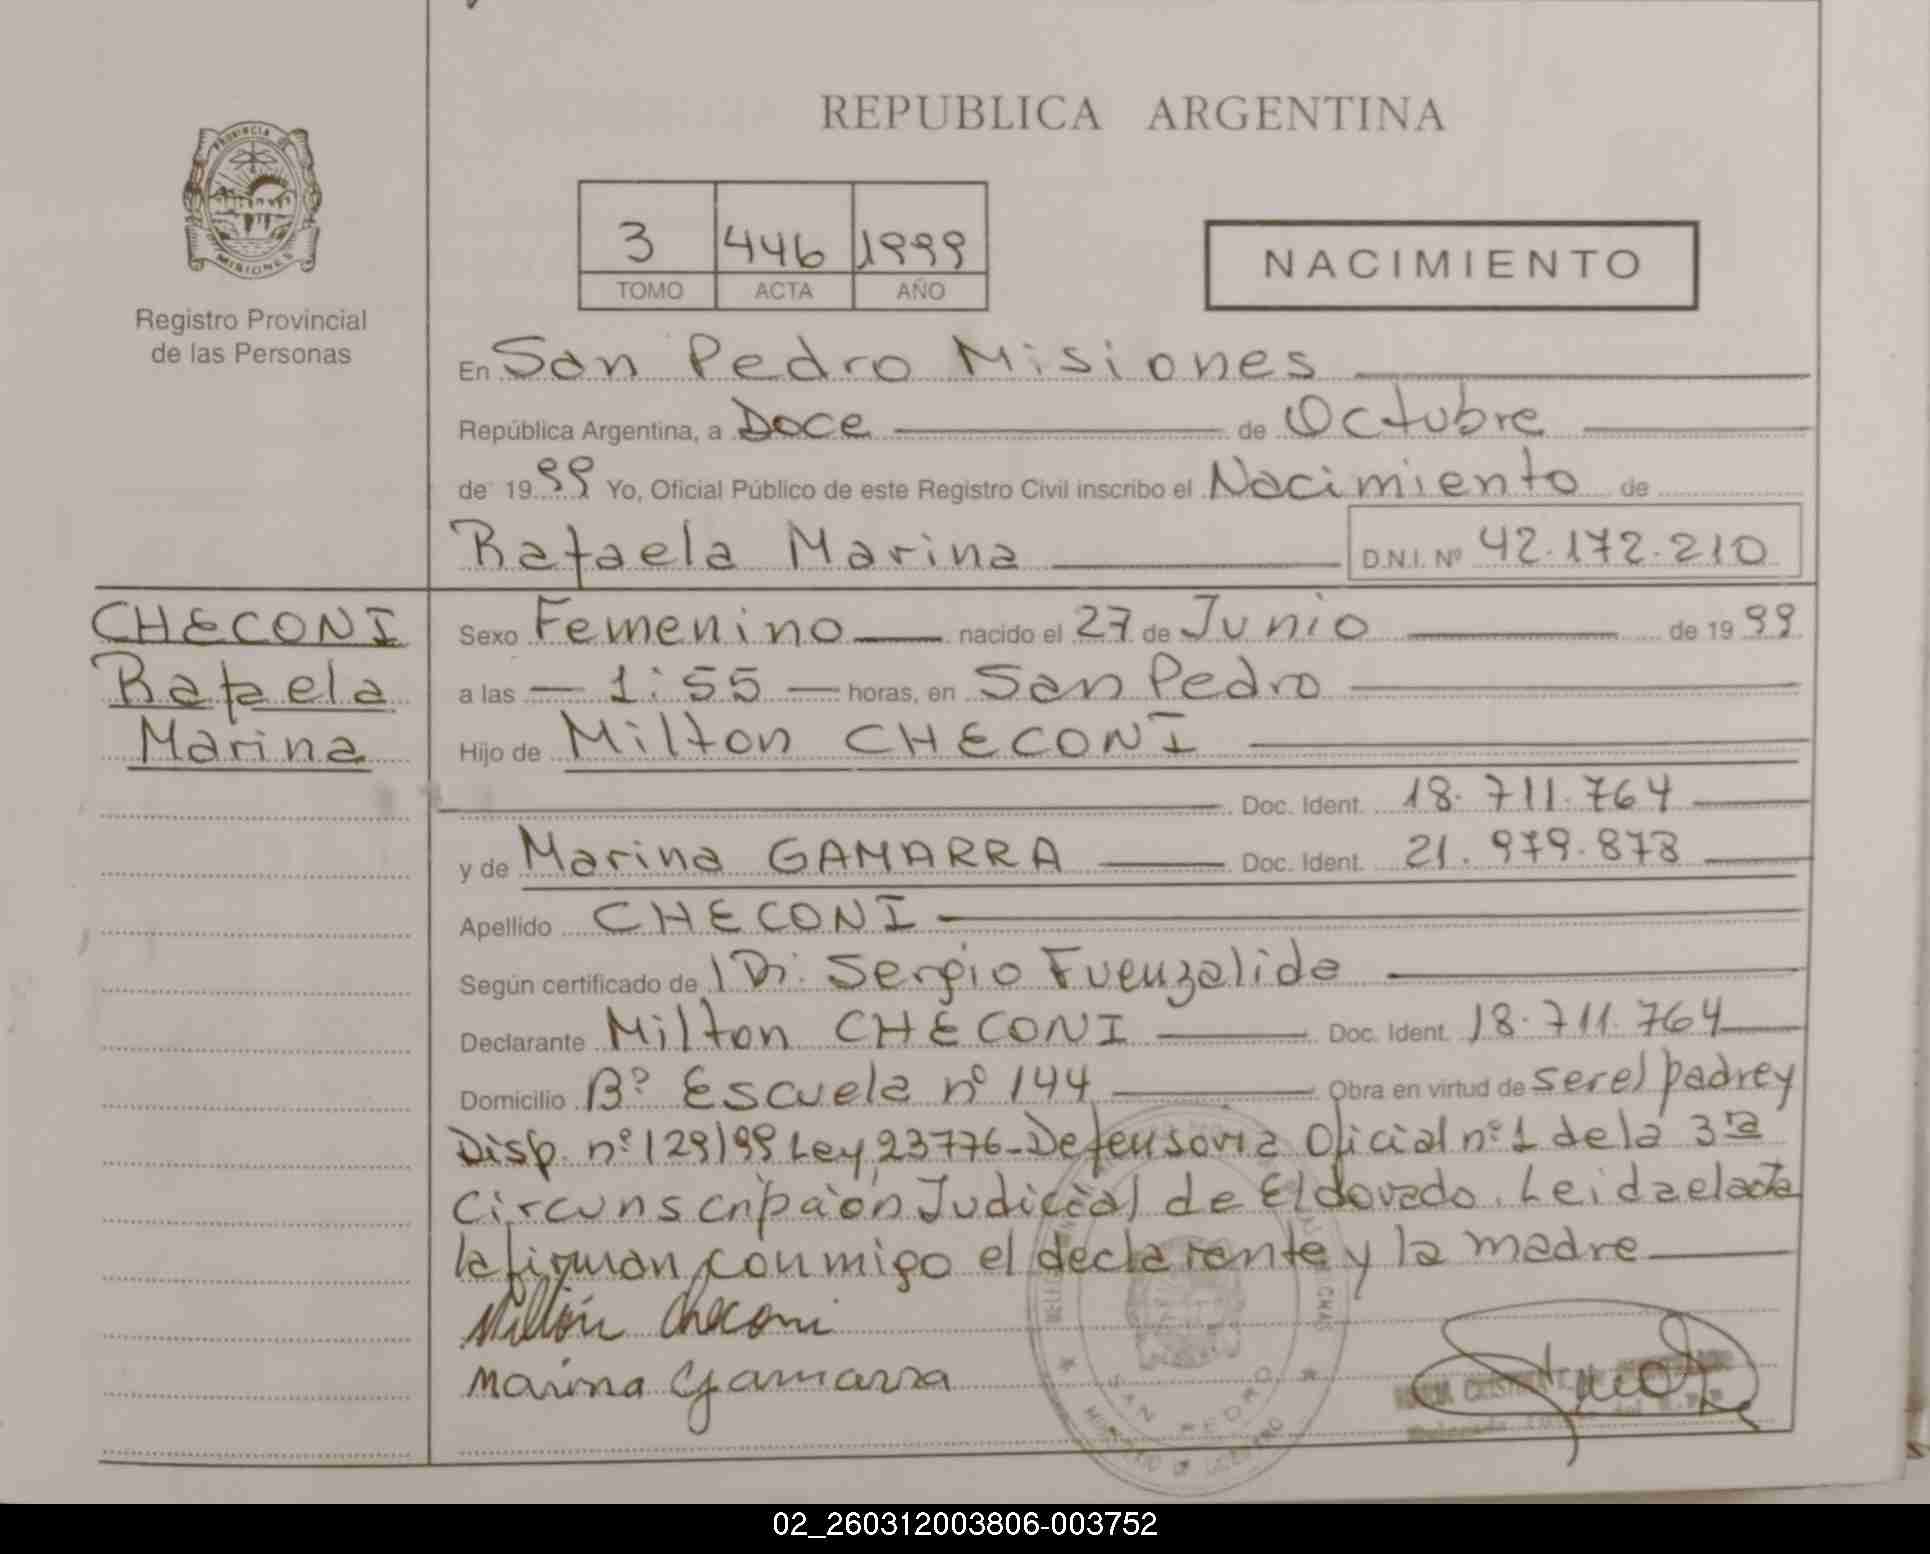 REPUBLICA ARGENTINA
PROVINCIA DE
MISIONES
Registro Provincial
de las Personas
3 446 1999
TOMO ACTA AÑO
NACIMIENTO
En San Pedro Misiones
República Argentina, a Doce de Octubre
de 1999 Yo, Oficial Público de este Registro Civil inscribo el Nacimiento de
Rafaela Marina D.N.I. Nº 42.172.210
CHECONI
Rafaela
Marina
Sexo Femenino nacido el 27 de Junio de 1999
a las 1:55 horas, en San Pedro
Hijo de Milton CHECONI
Doc. Ident. 18.711.764
y de Marina GAMARRA Doc. Ident. 21.979.878
Apellido CHECONI
Según certificado de Dr. Sergio Fuenzalida
Declarante Milton CHECONI Doc. Ident. 18.711.764
Domicilio Bº Escuela nº 144 Obra en virtud de ser el padre y
Disp. nº 129/99 Ley 23776-Defensoria Oficial nº 1 de la 3ra
Circunscripción Judicial de Eldorado. Leida el acta
la firman conmigo el declarante y la madre
Milton Checoni
Marina Gamarra
SAN PEDRO
02_260312003806-003752